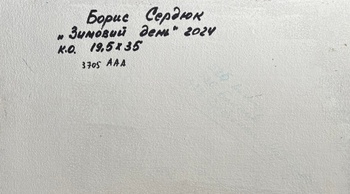 Борис Сердюк
„Зимовий день" 2024
К.О. 19,5 х 35
3705 ААА